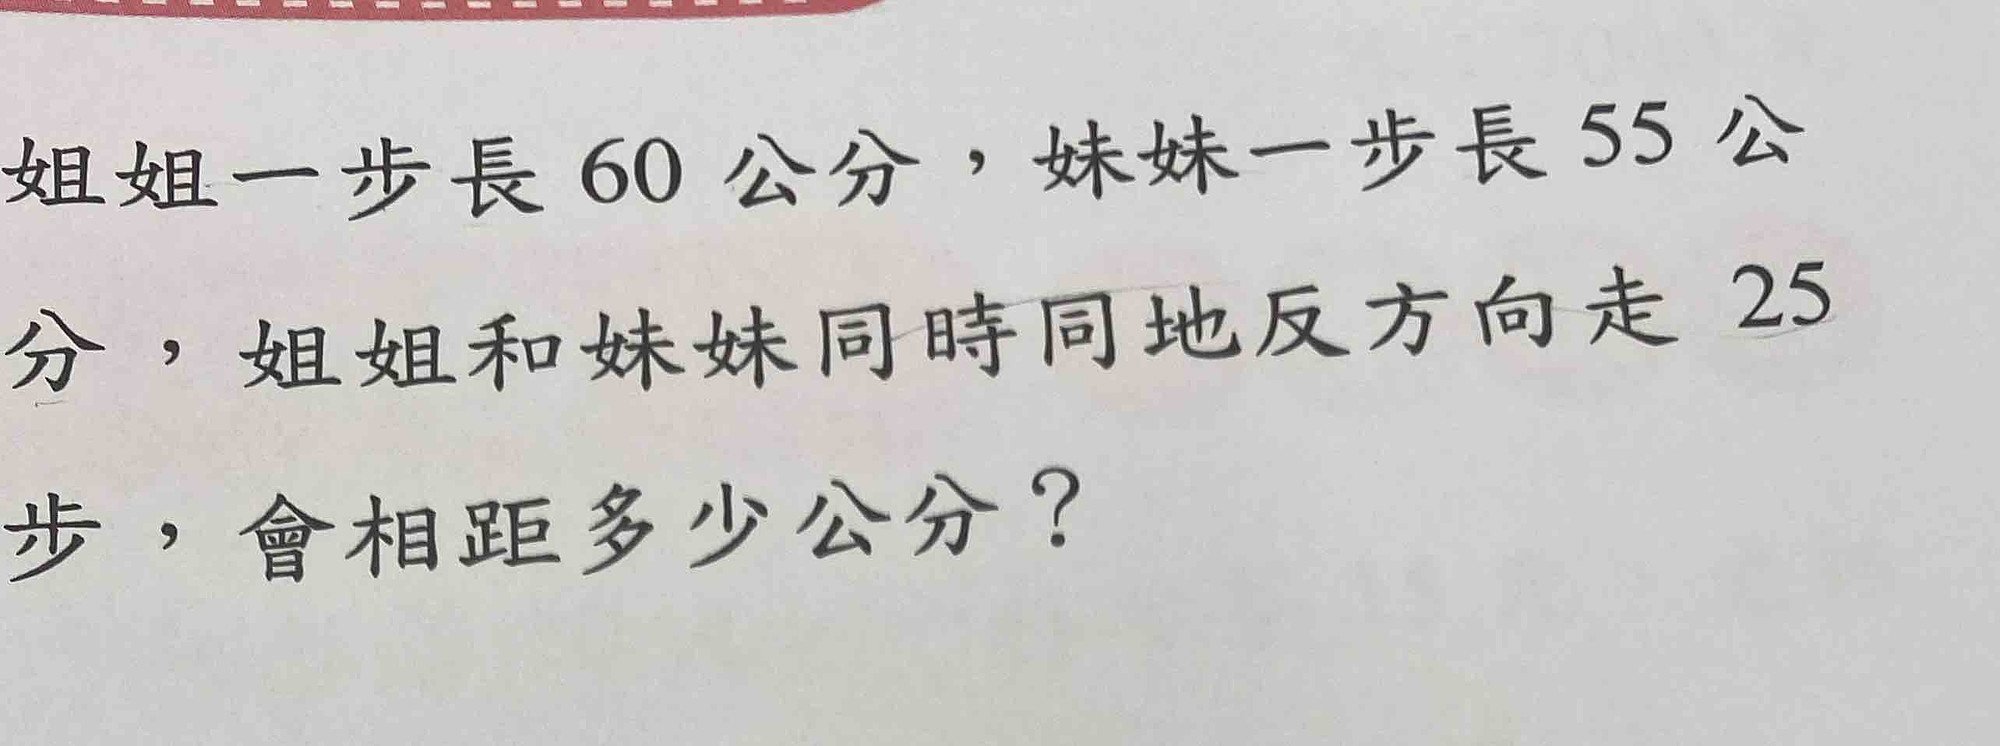 姐姐一步長 60 公分，妹妹一步長 55 公
分，姐姐和妹妹同時同地反方向走 25
步，會相距多少公分？